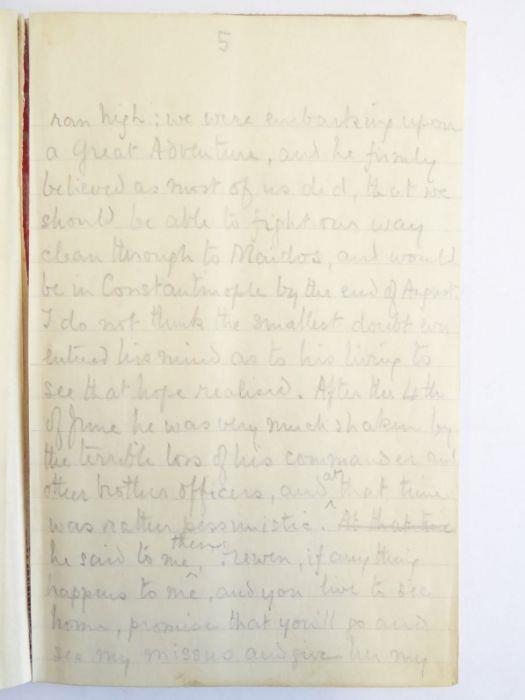 5
ran high; we were embarking upon
a Great Adventure, and he firmly
believed as most of us did, that we
should be able to fight our way
clean through to Maidos, and would
be in Constantinople by the end of August.
I do not think the smallest doubt ever
entered his mind as to his living to
see that hope realised. After the 4th
of June he was very much shaken by
the terrible loss of his commander and
other brother officers, and at that time
was rather pessimistic. At that time
he said to me then, " if anything
happens to me, and you live to see
home, promise that you'll go and
see my missus and give her my